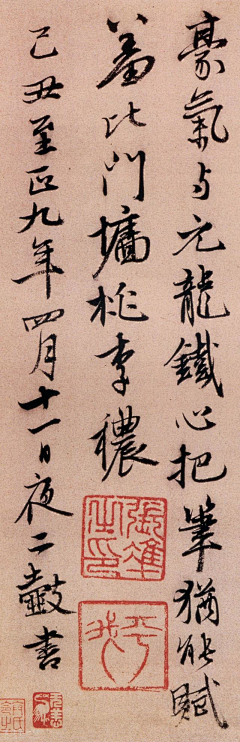 豪氣与元龍鐵心把筆猶能賦
羞比門墻桃李穠
己丑至正九年四月十一日夜二鼓書